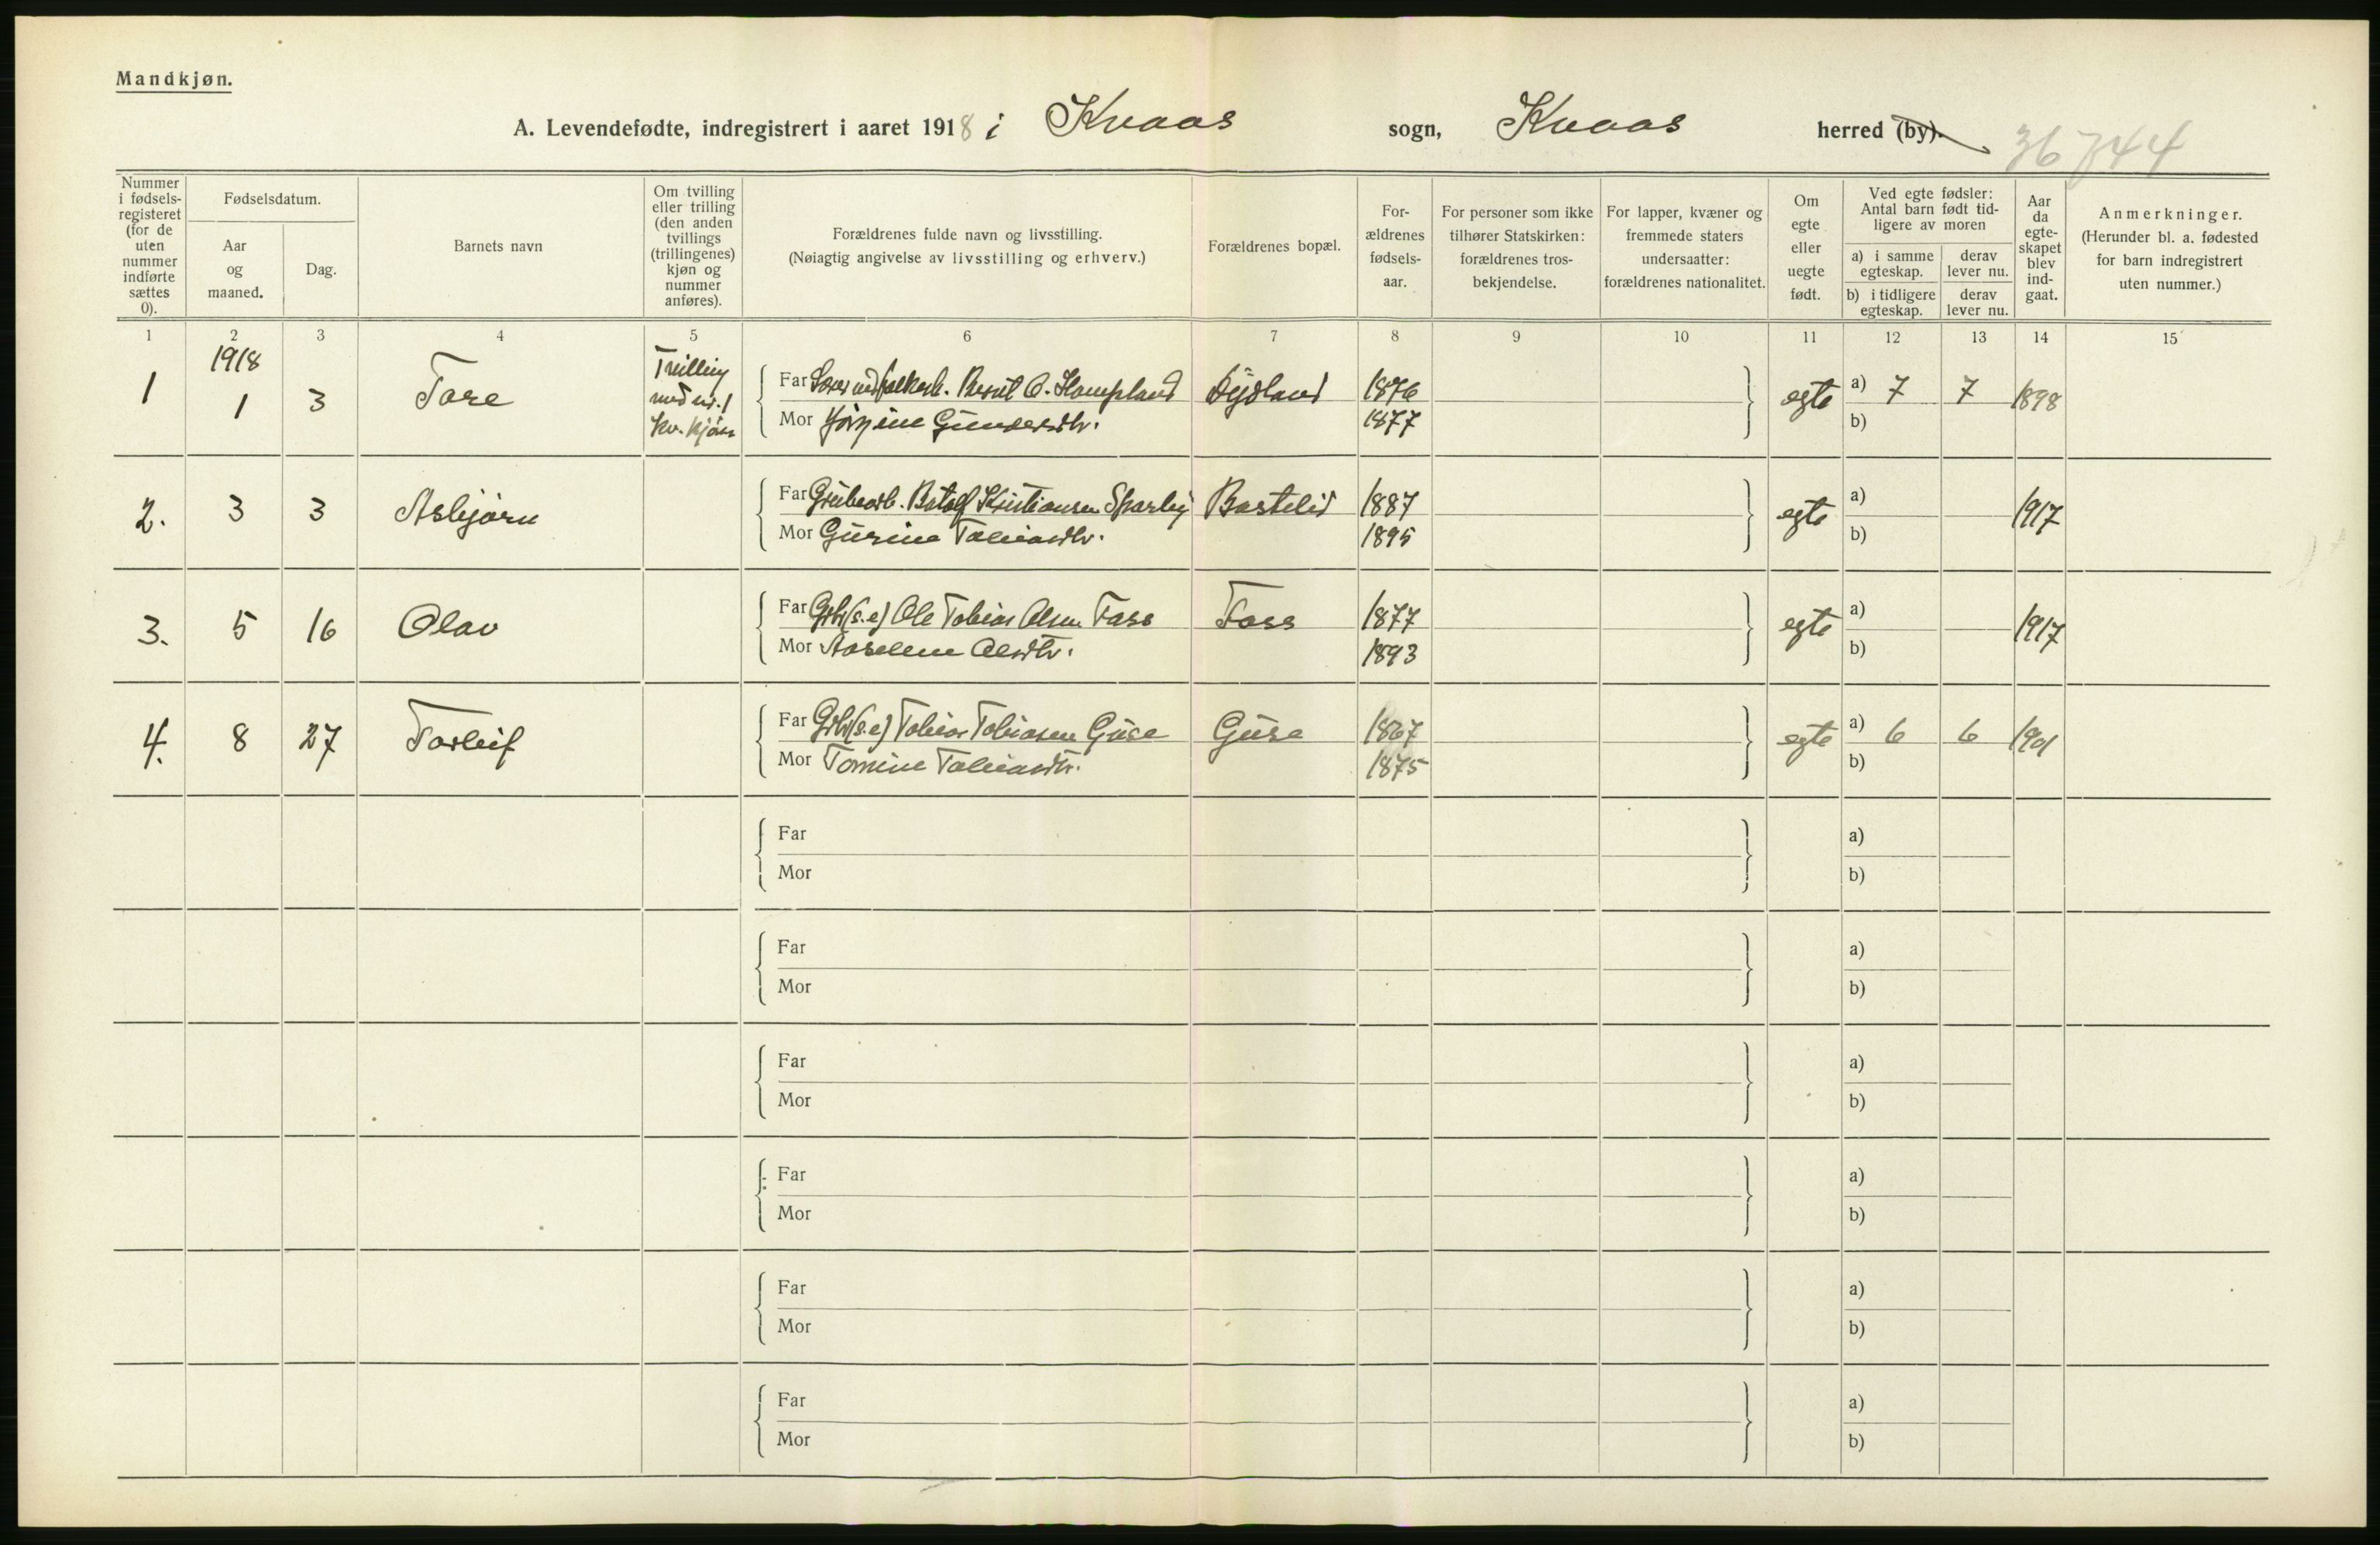 Mandkjøn.
A. Levendefødte, indregistrert i aaret 1918 i Kvaas sogn, Kvaas herred (by). 36744
Nummer i fødselsregisteret (for de uten nummer indførte sættes 0).
Fødselsdatum.
Aar og maaned.
Dag.
Barnets navn
Om tvilling eller trilling (den anden tvillings (trillingenes) kjøn og nummer anføres).
Forældrenes fulde navn og livsstilling.
(Nøiagtig angivelse av livsstilling og erhverv.)
Forældrenes bopæl.
Forældrenes fødselsaar.
For personer som ikke tilhører Statskirken: forældrenes trosbekjendelse.
For lapper, kvæner og fremmede staters undersaatter: forældrenes nationalitet.
Om egte eller uegte født.
Ved egte fødsler: Antal barn født tidligere av moren
a) i samme egteskap.
derav lever nu.
b) i tidligere egteskap.
derav lever nu.
Aar da egteskapet blev indgaat.
Anmerkninger.
(Herunder bl. a. fødested for barn indregistrert uten nummer.)
1 2 3 4 5 6 7 8 9 10 11 12 13 14 15
1918
1 1 3 Tore Tvilling med nr. 1 kv. kjøn
Far Bernt O. Hompland Dydland 1876 egte a) 7 7 1898
Mor Jørgine Gundersdtr. 1877 b)
2. 3 3 Asbjørn
Far Grubearb. Botolf Kristiansen Skarley Bastelid 1887 egte a) 1917
Mor Gurine Tobiasdtr. 1895 b)
3. 5 16 Olav
Far Grbr (s.e) Ole Tobias Olsen Foss Foss 1877 egte a) 1917
Mor Aaselene Olsdtr. 1893 b)
4. 8 27 Torleif
Far Grbr (s.e) Tobias Tobiasen Guse Guse 1867 egte a) 6 6 1901
Mor Tomine Tobiasdtr. 1875 b)
Far a)
Mor b)
Far a)
Mor b)
Far a)
Mor b)
Far a)
Mor b)
Far a)
Mor b)
Far a)
Mor b)